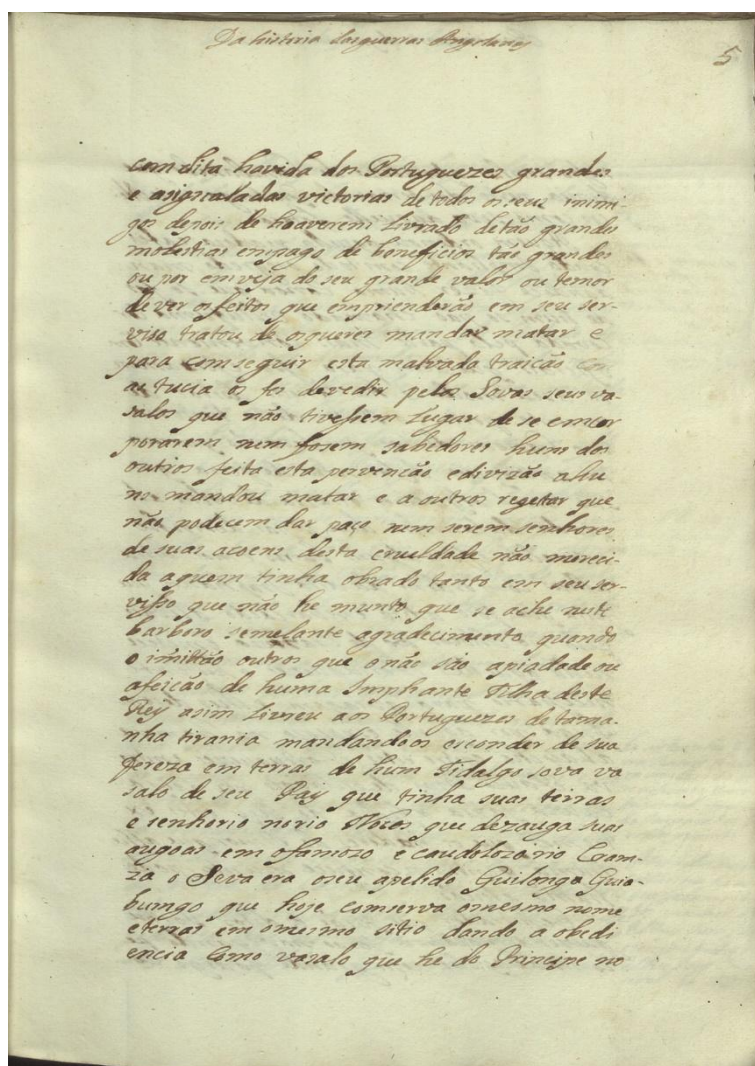 Da historia das guerras Angolanas
5
com dita havida dos Portuguezes grandes
e asignaladas victorias de todos os seus inimi-
gos depois de hoaverem Livrado detão grandes
molestias empago de beneficios tão grandes
ou por emveja do seu grande valor ou temor
de ver os feitos que emprienderão em seu ser-
viso tratou de os querer mandar matar e
para comseguir esta malvada traicão co
astucia os fes devedir pelos Sovas seus va-
salos que não tivessem Lugar de se emcor
porarem nem fosem sabedores huns dos
outros feita esta pervencão edivizão a hu
ns mandou matar e a outros regeitar que
não podecem dar paço nem serem senhores
de suas acoens desta crueldade não mereci-
da a quem tinha obrado tanto em seu ser-
visso que não he munto que se ache neste
barboro semelante agradecimento quando
o imittão outros que o não são apiadade ou
afeicão de huma Imphante Filha deste
Rey asim Livrou aos Portuguezes de tama-
nha tirania mandandoos esconder de sua
fereza em terras de hum Fidalgo sova va
salo de seu Pay que tinha suas terras
e senhorio no rio que dezauga suas
augoas em o famozo e caudolozo rio Coam-
za o Sova era o seu apelido Guilonga Guia-
bumgo que hoje comserva o mesmo nome
e terras em o mesmo sitio dando a obedi
encia como vasalo que he do Principe no